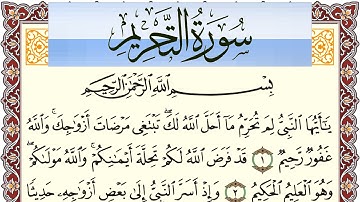 سُورَةُ التَّحْرِيمِ
بِسْمِ اللَّهِ الرَّحْمَٰنِ الرَّحِيمِ
يَٰٓأَيُّهَا النَّبِىُّ لِمَ تُحَرِّمُ مَآ أَحَلَّ اللَّهُ لَكَ ۖ تَبْتَغِى مَرْضَاتَ أَزْوَٰجِكَ ۚ وَاللَّهُ
غَفُورٌ رَّحِيمٌ ١ قَدْ فَرَضَ اللَّهُ لَكُمْ تَحِلَّةَ أَيْمَٰنِكُمْ ۚ وَاللَّهُ مَوْلَىٰكُمْ ۖ
وَهُوَ الْعَلِيمُ الْحَكِيمُ ٢ وَإِذْ أَسَرَّ النَّبِىُّ إِلَىٰ بَعْضِ أَزْوَٰجِهِۦ حَدِيثًا